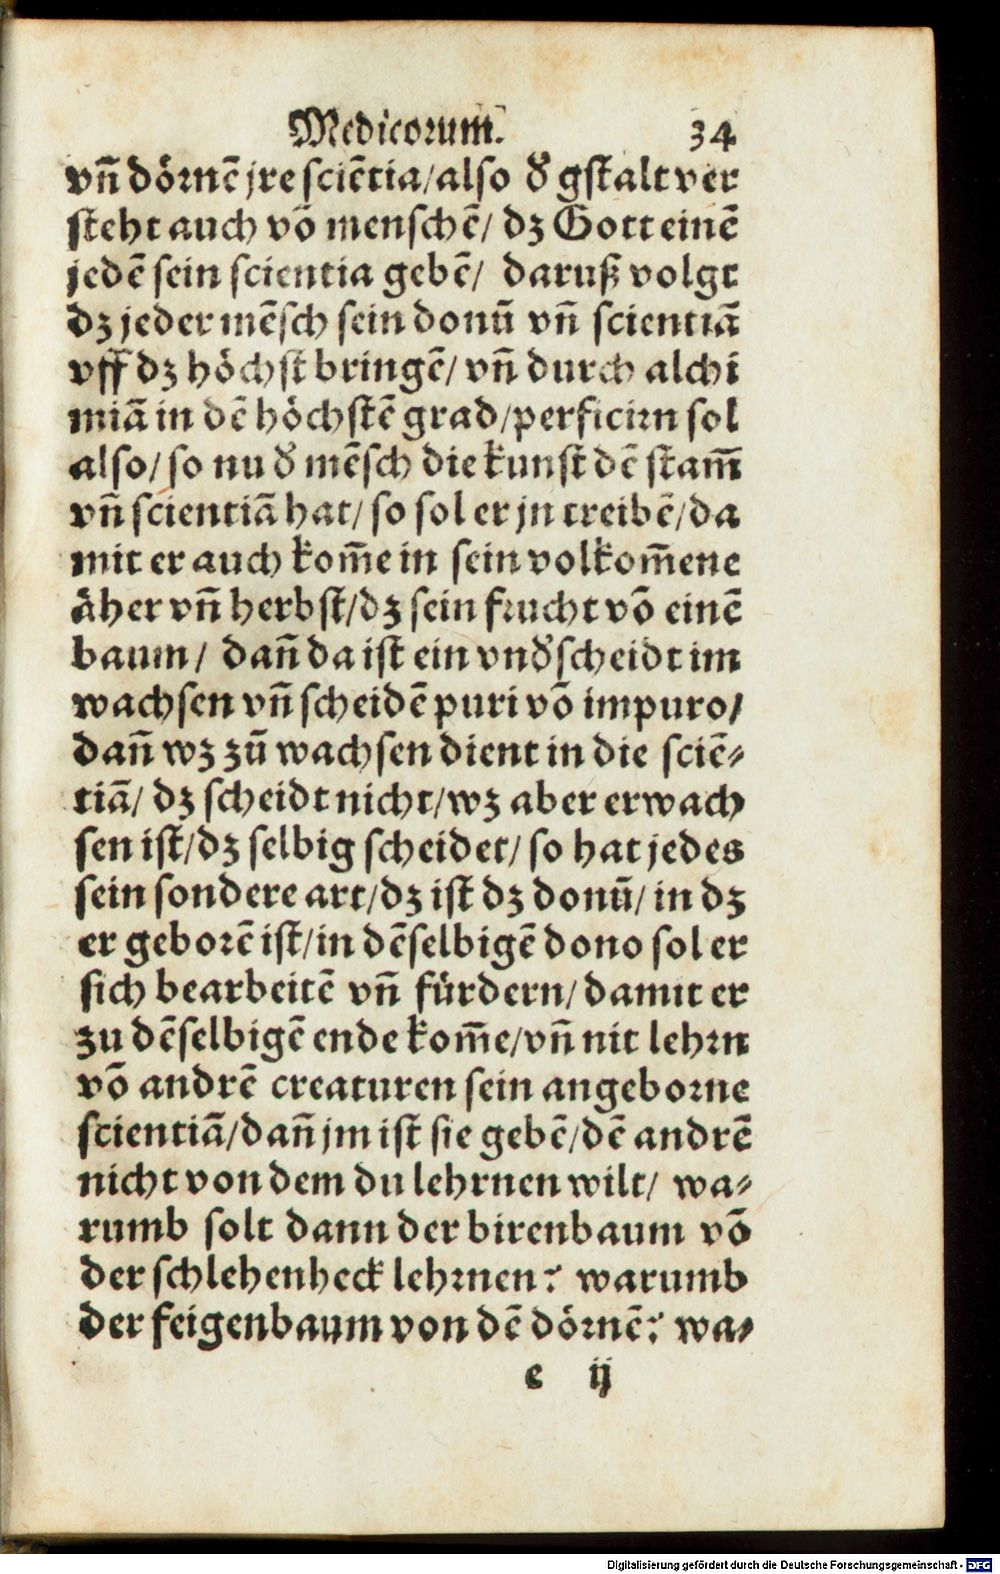 Medicorum. 34
vñ dörnẽ jre sciẽtia/also d̕ gstalt ver
steht auch võ menschẽ/ dz Gott einẽ
jedẽ sein scientia gebẽ/ daruß volgt
dz jeder mẽsch sein donũ vñ scientiã
vff dz höchst bringẽ/ vñ durch alchi
miã in dẽ höchstẽ grad/perficirn sol
also/ so nu d̕ mẽsch die kunst dẽ stam̃
vñ scientiã hat/ so sol er jn treibẽ/da
mit er auch kom̃e in sein volkom̃ene
äher vñ herbst/dz sein frucht võ einẽ
baum/ dañ da ist ein vnd̕scheidt im
wachsen vñ scheidẽ puri võ impuro/
dañ wz zũ wachsen dient in die sciẽ-
tiã/ dz scheidt nicht/wz aber erwach
sen ist/dz selbig scheidet/ so hat jedes
sein sondere art/dz ist dz donũ/ in dz
er geborẽ ist/in dẽselbigẽ dono sol er
sich bearbeitẽ vñ fürdern/damit er
zu dẽselbigẽ ende kom̃e/vñ nit lehrn
võ andrẽ creaturen sein angeborne
scientiã/dañ jm ist sie gebẽ/dẽ andrẽ
nicht von dem du lehrnen wilt/ wa-
rumb solt dann der birenbaum võ
der schlehenheck lehrnen? warumb
der feigenbaum von dẽ dörnẽ? wa-
e ij
Digitalisierung gefördert durch die Deutsche Forschungsgemeinschaft - DFG